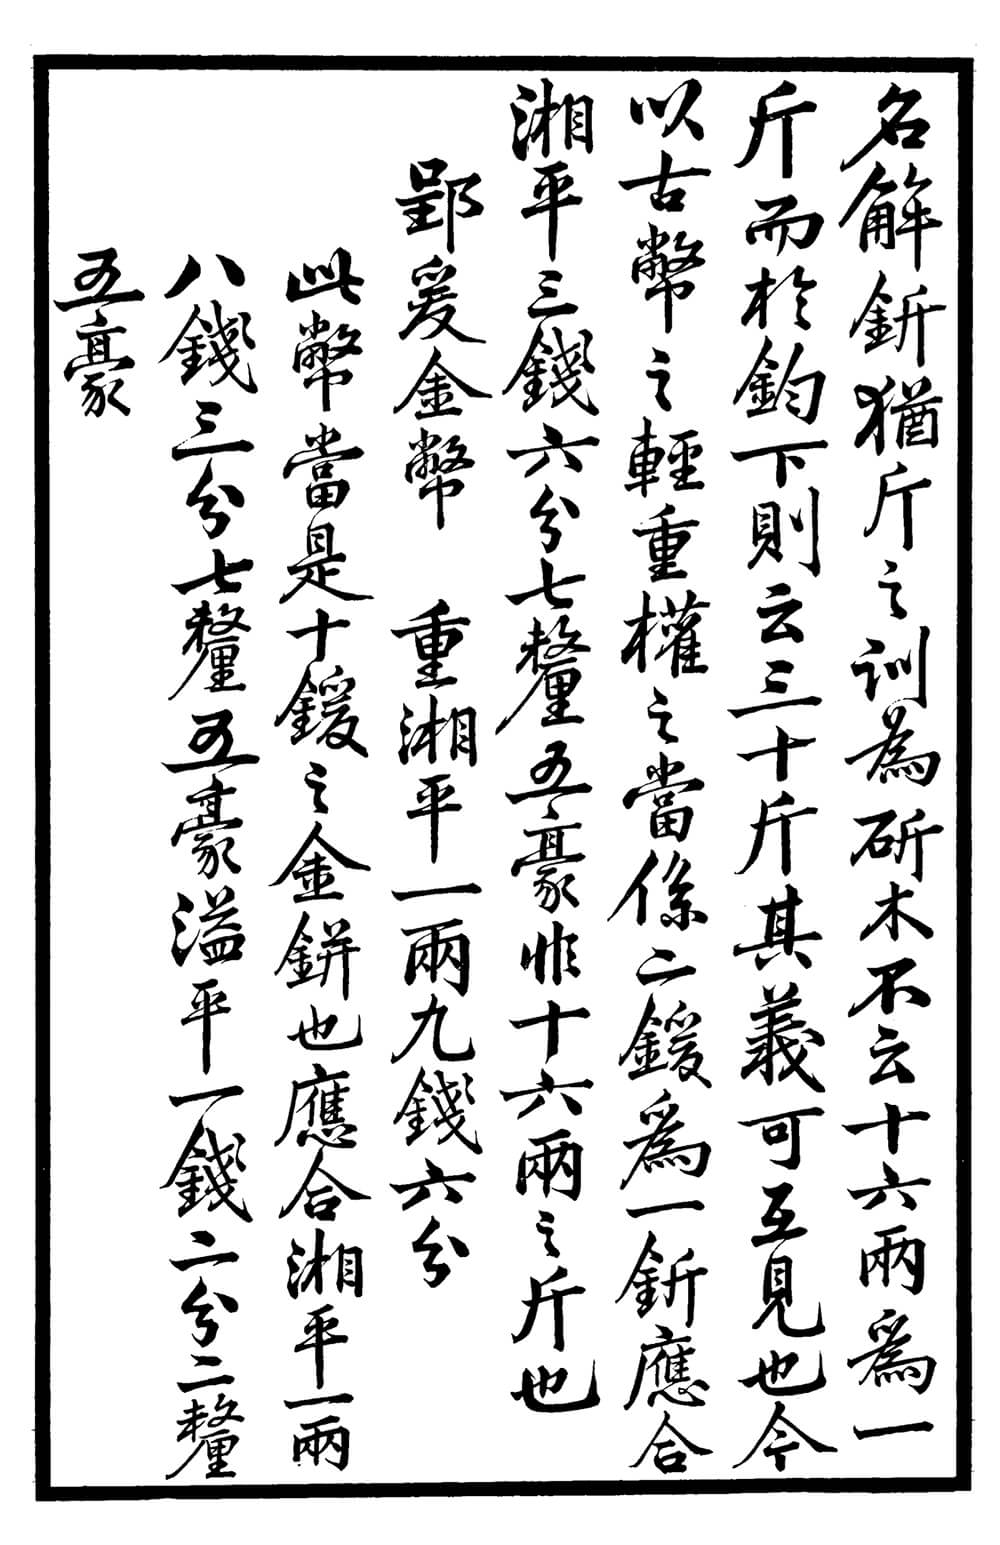 名解釿猶斤之訓為斫木不云十六兩為一
斤而於鈞下則云三十斤其義可互見也今
以古幣之輕重權之當係二鍰為一釿應合
湘平三錢六分七釐五豪非十六兩之斤也
郢爰金幣　重湘平一兩九錢六分
此幣當是十鍰之金鉼也應合湘平一兩
八錢三分七釐五豪溢平一錢二分二釐
五豪